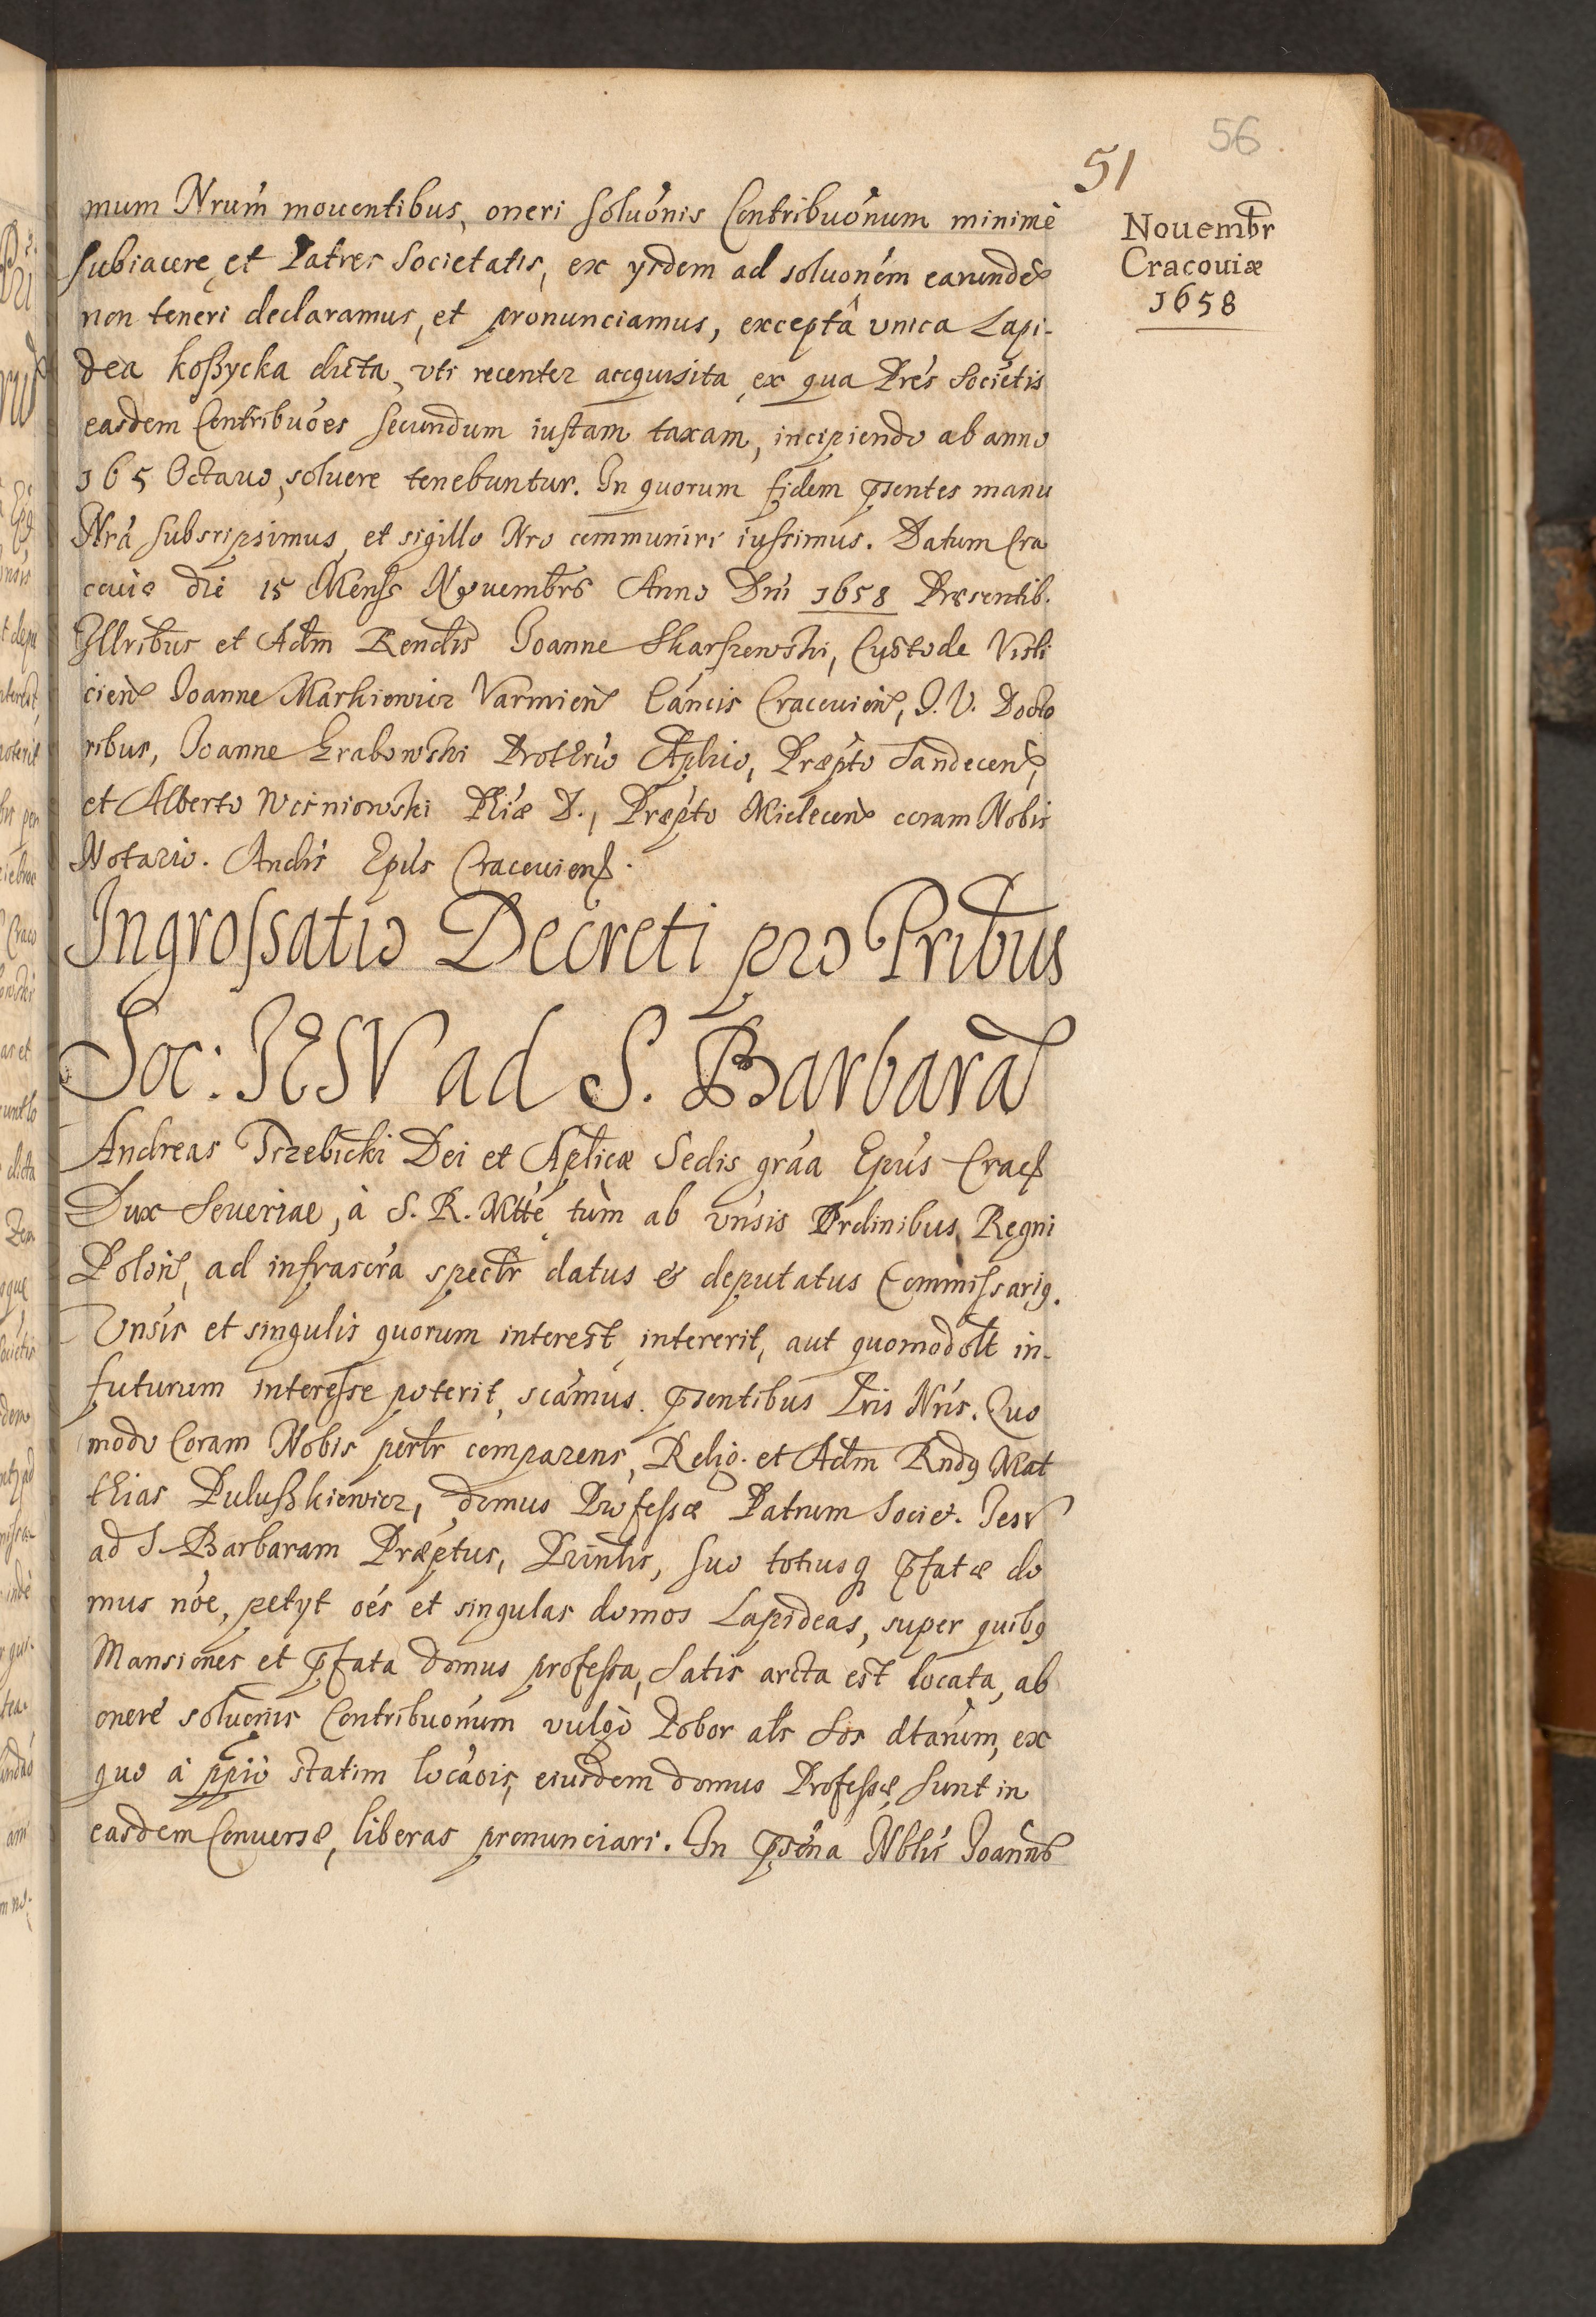 56.
51
Nouembr
Cracouiæ
1658
mum Nrum mouentibus, oneri soluónis Contribuónum minimè
subiacere et Patres Societatis, ex ysdem ad soluoném earundē
non teneri declaramus, et pronunciamus, exceptâ vnica Lapi-
dea koßycka dicta, vti recenter accquisita, ex qua Pres Societis
easdem Contribuóes secundum iustam taxam, incipiendo ab anno
165 Octauo, soluere tenebuntur. In quorum fidem pñtes manu
Nrá subscripsimus, et sigillo Nro communiri iussimus. Datum Cra
couiæ die 15 Mens Nouembrs Anno Dni 1658 Præsentib.
Illribus et Adm Rendis Joanne Skarszewski, Custode Visli
cien Joanne Markiewicz Varmien Cáncis Cracouien, J. V. Docto
ribus, Joanne Grabowski Prothrio Aplico, Præpto Sandecen,
et Alberto Wisniowski Phiæ D., Præpto Mielecen coram Nobis
Notario. Andis Epus Cracouiens.
Ingrossatio Decreti pro Pribus
Soc: JESV ad S. Barbarā
Andreas Trzebicki Dei et Aplicæ Sedis gráa Epús Crac
Dux Seueriae, à S. R. Mtte tùm ab vnsis Ordinibus Regni
Polon, ad infrascrá spectr datus & deputatus Commissarig.
Vnsis et singulis quorum interest, intererit, aut quomodolt in-
futurum interesse poterit, scámus. psentibus Lris Nris. Quo
modo Coram Nobis perlr comparens, Relig. et Adm Rndg Mat
thias Pulußkiewicz, domus Professæ Patrum Societ. Jesv
ad S Barbaram Præptus, Printis, suo totiusq pfatæ do
mus nóe, petyt oés et singulas domos Lapideas, super quibg
Mansiones et pfata domus professa, satis arcta est locata, ab
onere soluónis Contribuónum vulgò Pobor als Sos dtarum, ex
quo à ppiò statim locáois, eiusdem domus Professæ, sunt in
easdem Conuersæ, liberas pronunciari. In psena Nblis Joannis